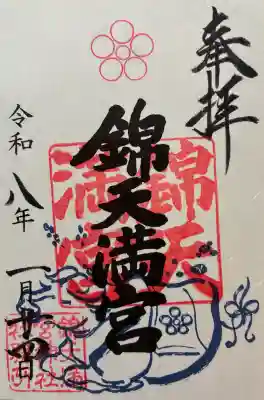 奉拝
錦天満宮
錦天
満宮
令和八年
一月廿四日